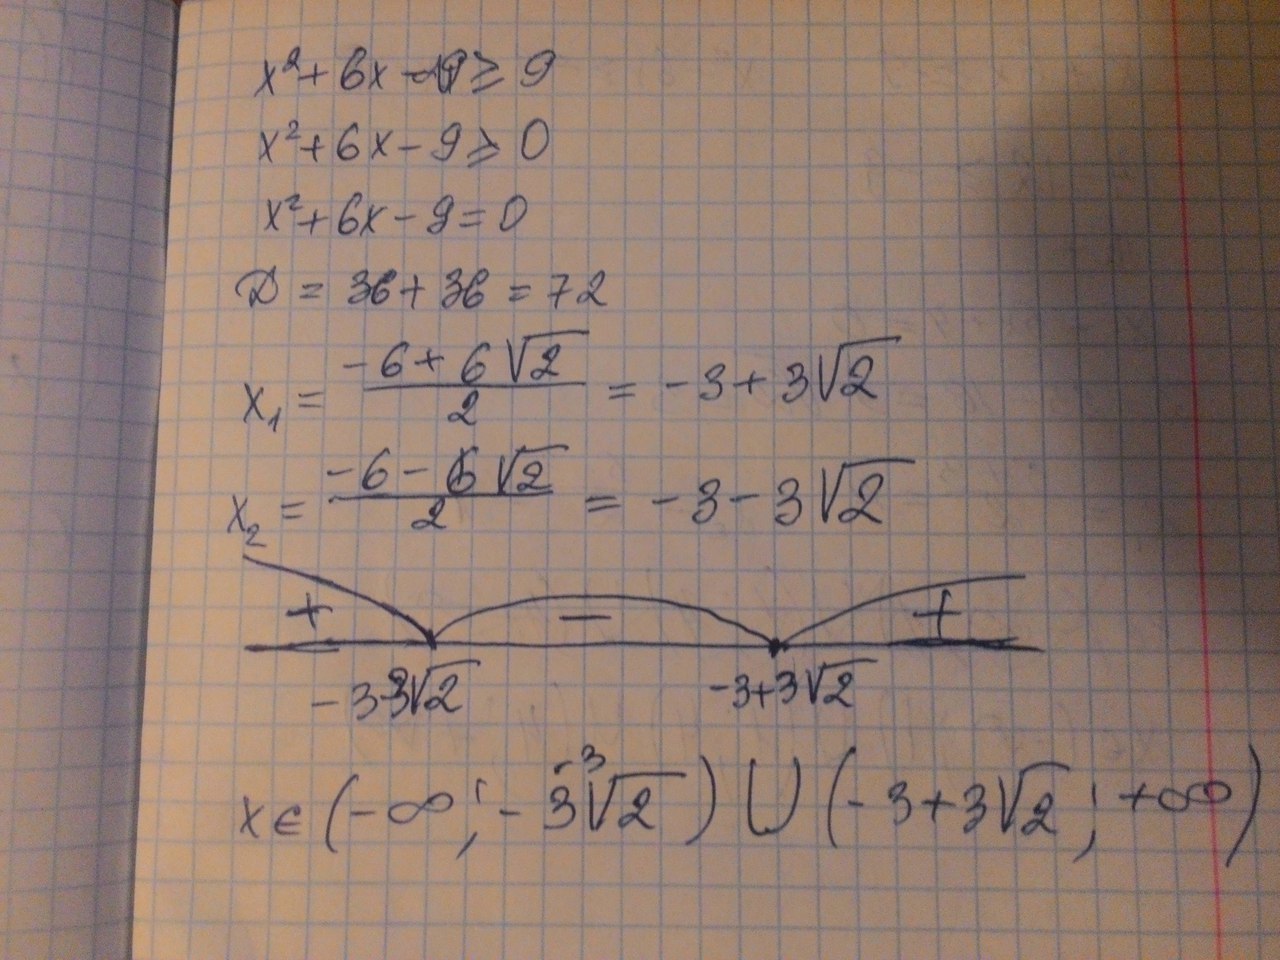 x² + 6x ≥ 9
x² + 6x - 9 ≥ 0
x² + 6x - 9 = 0
D = 36 + 36 = 72
x₁ = (-6 + 6√2)/2 = -3 + 3√2
x₂ = (-6 - 6√2)/2 = -3 - 3√2
+ − +
-3-3√2 -3+3√2
x ∈ (-∞; -3-3√2) ∪ (-3+3√2; +∞)